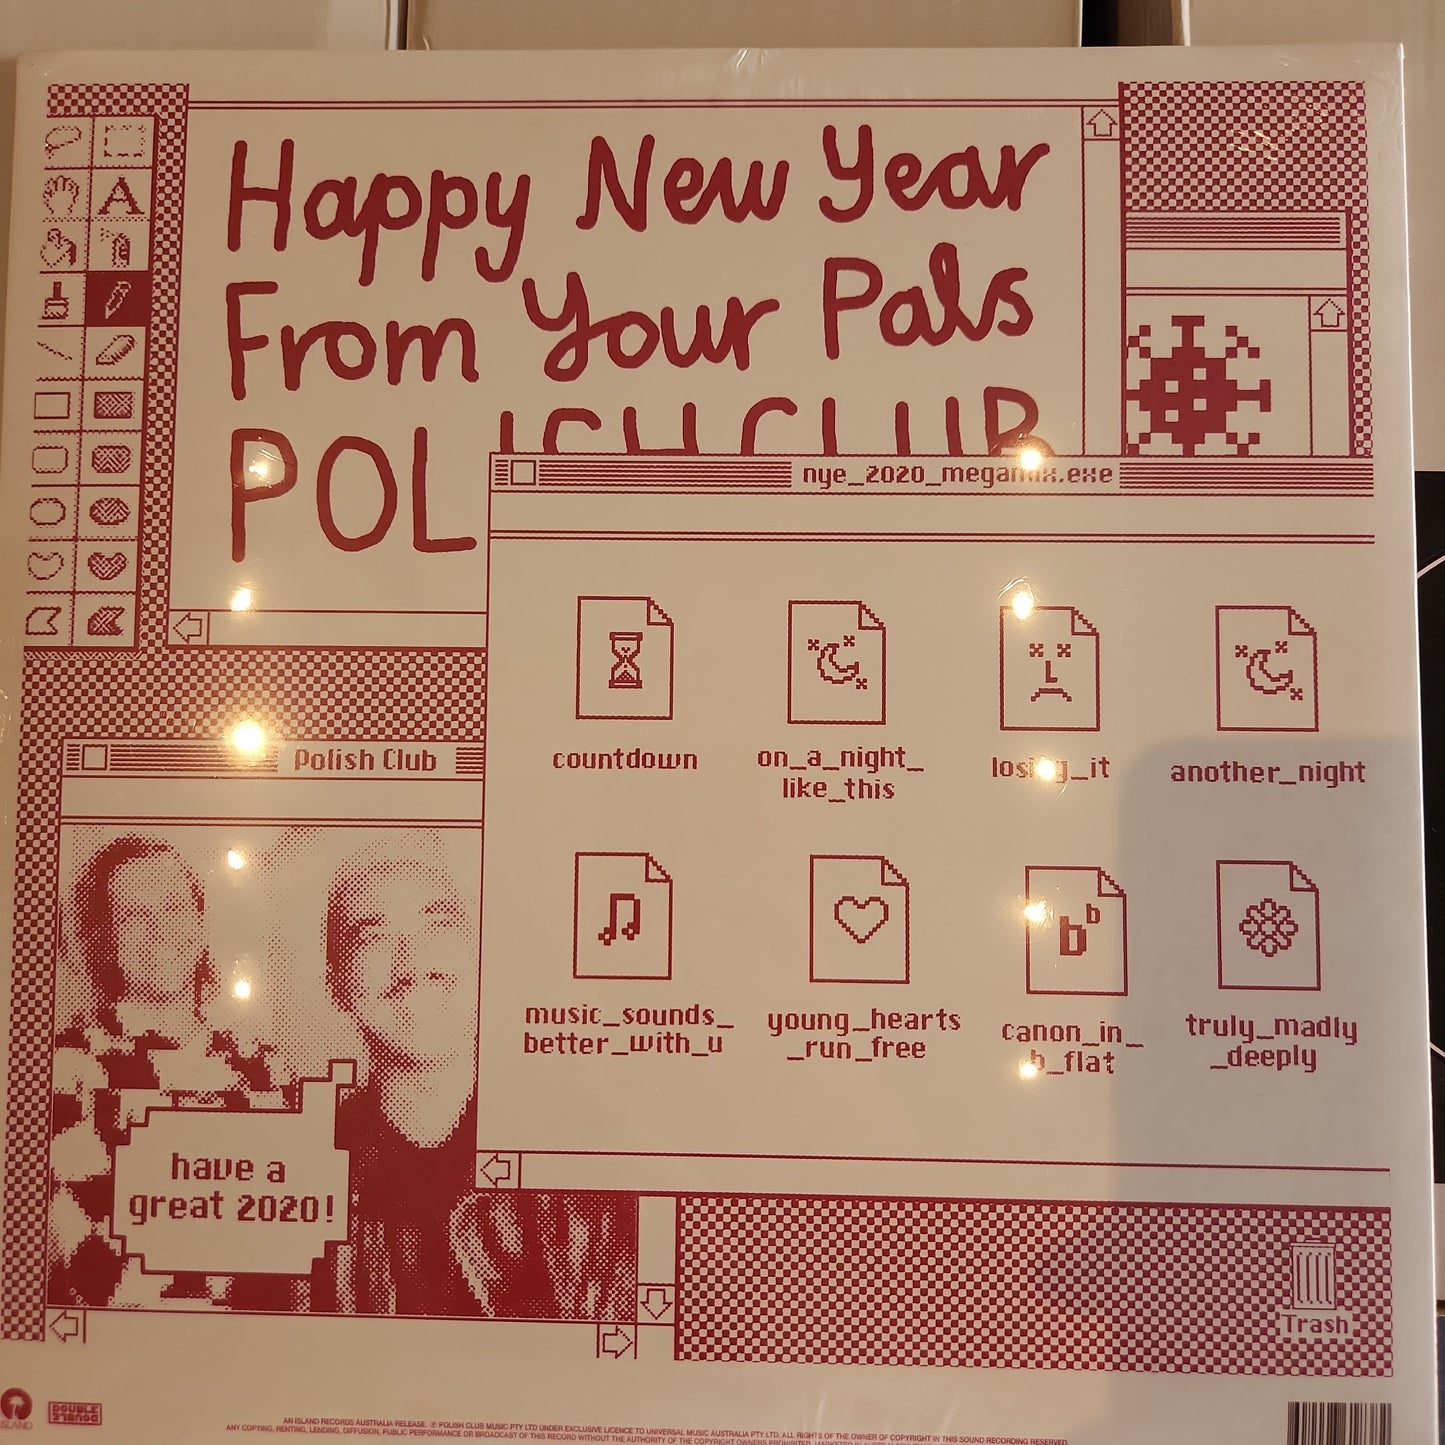 A
Happy New Year
From Your Pals
POLISH CLUB
nye_2020_megamix.exe
countdown
on_a_night_
like_this
losing_it
another_night
music_sounds_
better_with_u
young_hearts
_run_free
bb
canon_in_
b_flat
truly_madly
_deeply
Polish Club
have a
great 2020!
Trash
ISLAND
DOUBLE
DOUBLE
AN ISLAND RECORDS AUSTRALIA RELEASE. ℗ POLISH CLUB MUSIC PTY LTD UNDER EXCLUSIVE LICENCE TO UNIVERSAL MUSIC AUSTRALIA PTY LTD. ALL RIGHTS OF THE OWNER OF COPYRIGHT IN THIS SOUND RECORDING RESERVED.
ANY COPYING, RENTING, LENDING, DIFFUSION, PUBLIC PERFORMANCE OR BROADCAST OF THIS RECORD WITHOUT THE AUTHORITY OF THE COPYRIGHT OWNERS PROHIBITED.